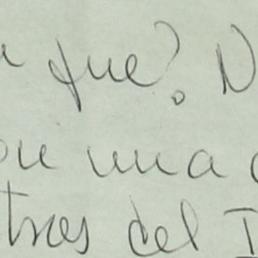 que? N
una
tres del I